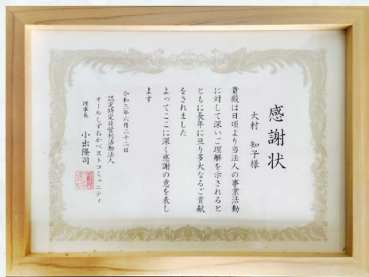 感謝状
大村 知子様
貴殿は日頃より当法人の事業活動
に対して深いご理解を示されると
ともに長年に亘り多大なるご貢献
をされました
よってここに深く感謝の意を表し
ます
令和三年六月二十二日
認定特定非営利活動法人
オールしずおかベストコミュニティ
理事長 小出隆司